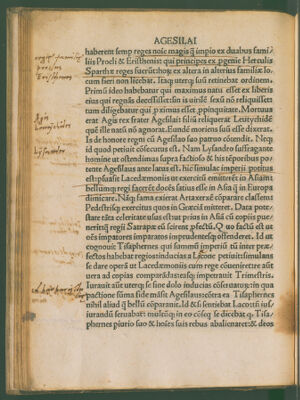 AGESILAI
haberent semp reges noīe magis q̃ impio ex duabus fami⸗
liis Procli & Eristhenis qui principes ex ꝓgenie Herculis
Sparthæ reges fuerūt: hoꝝ ex altera in alterius familiæ lo⸗
cum fieri non licebat. Itaq; uterq; suū retinebat ordinem.
Primū ideo habebatur qui maximus natu esset ex liberis
eius qui regnās decessisset: sin is uirilē sexū nō reliquisset:
tum deligebatur qui proximus esset ꝓpinquitate. Mortuus
erat Agis rex frater Agesilai: filiū reliquerat Leutychidē
quē ille natū nō agnorat. Eundē moriens suū esse dixerat.
Is de honore regni cū Agesilao suo patruo cōtendit. Neq;
id quod petiuit cōsecutus est. Nam Lysandro suffragante
homine ut ostendimus supra factioso & his tēporibus po⸗
tente Agesilaus ante latus est. hic simulac imperii potitus
est: psuasit Lacedæmoniis ut exercitū emitterēt in Asiā:
bellumq; regi facerēt: docēs satius esse in Asia q̃ in Europa
dimicare. Nāq; fama exierat Artaxerxē cōparare classem:
Pedestrisq; exercitus quos in Græciā mitteret. Data pote⸗
state tāta celeritate usus est: ut prius in Asiā cū copiis pue⸗
nerit: q̃ regii Satrapæ eū scirent ꝓfectū. Quo factū est ut
oēs imparatos imparatos imprudentesq; offenderet. Id ut
cognouit Tisaphernes qui summū imperiū tū inter præ⸗
fectos habebat regios: inducias a Lacone petiuit: simulans
se dare operā ut Lacedæmoniis cum rege cōueniret: re autē
uera ad copias comparādas: easq; impetrauit Trimestris.
Iurauit autē uterq; se sine dolo inducias cōseruaturū: in qua
pactione summa fide māsit Agesilaus: cōtra ea Tisaphernes
nihil aliud q̃ bellū cōparauit. Id & si sentiebat Laco: tñ ius⸗
iurandū seruabat: multūq; in eo cōseq̃ se dicebat q; Tisa⸗
phernes piurio suo & hoīes suis rebus abalienaret: & deos
Agis